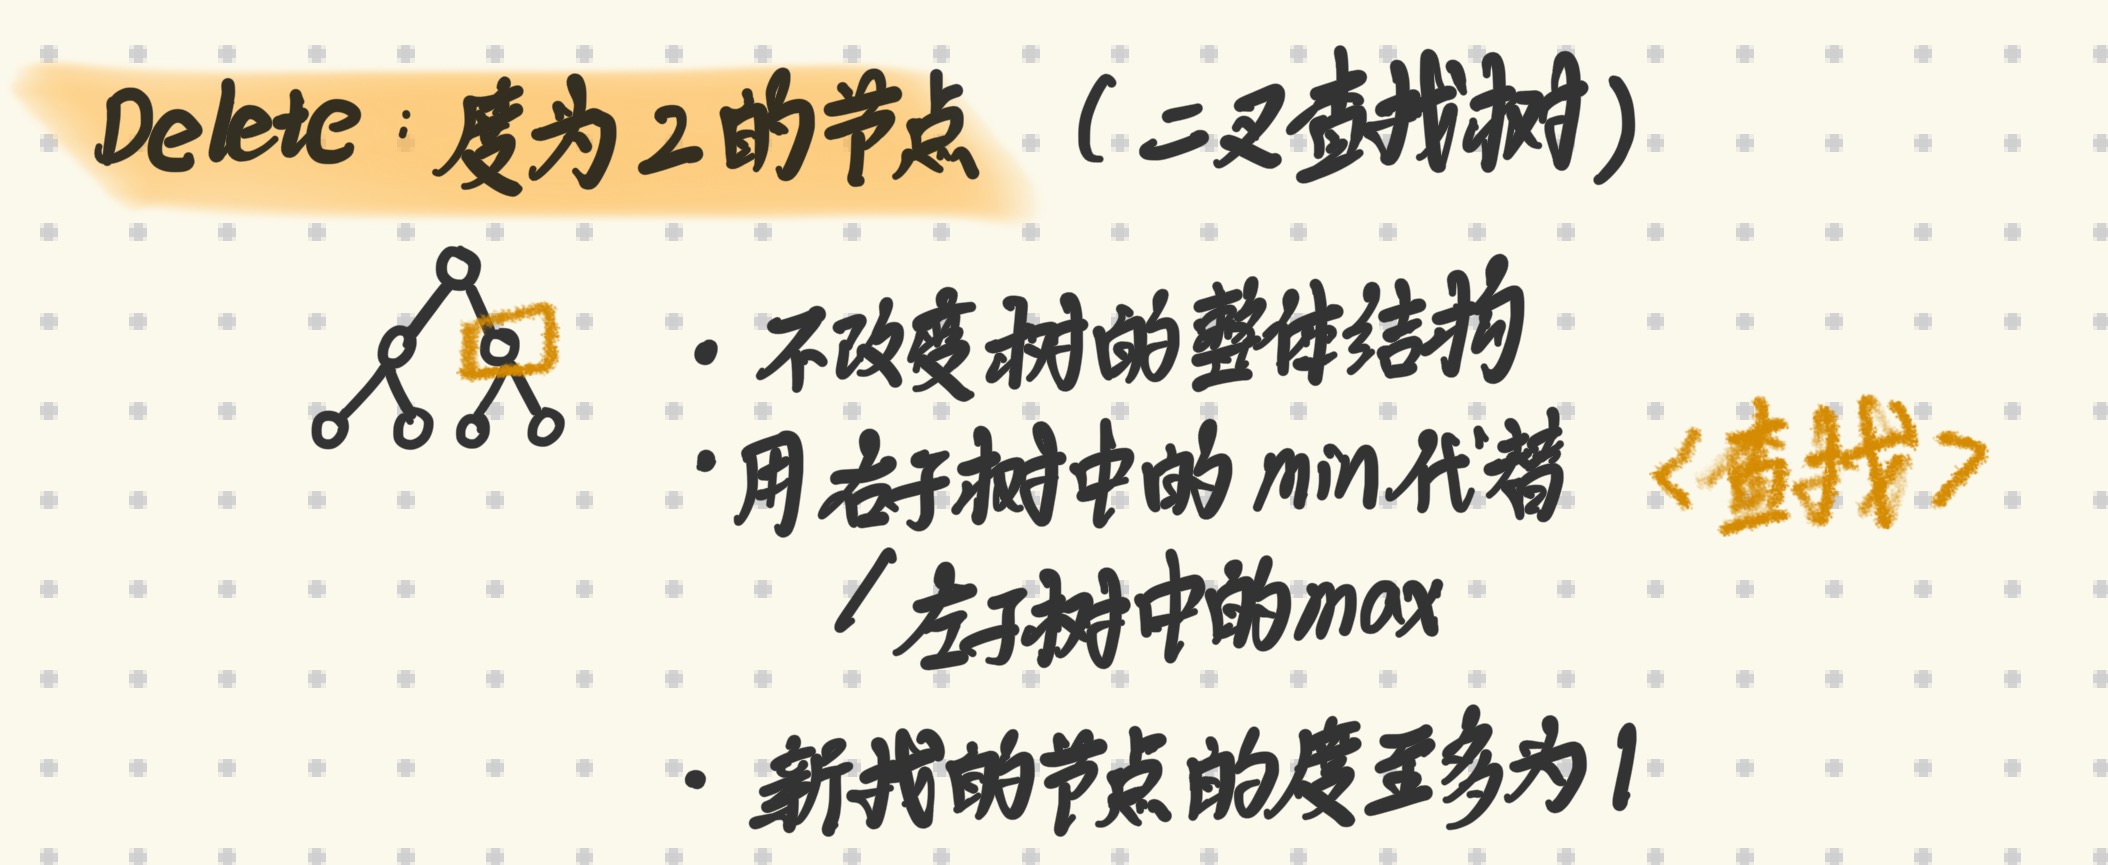 Delete：度为2的节点 （二叉查找树）
· 不改变树的整体结构
· 用右子树中的min代替 <查找>
/ 左子树中的max
· 新找的节点的度至多为1